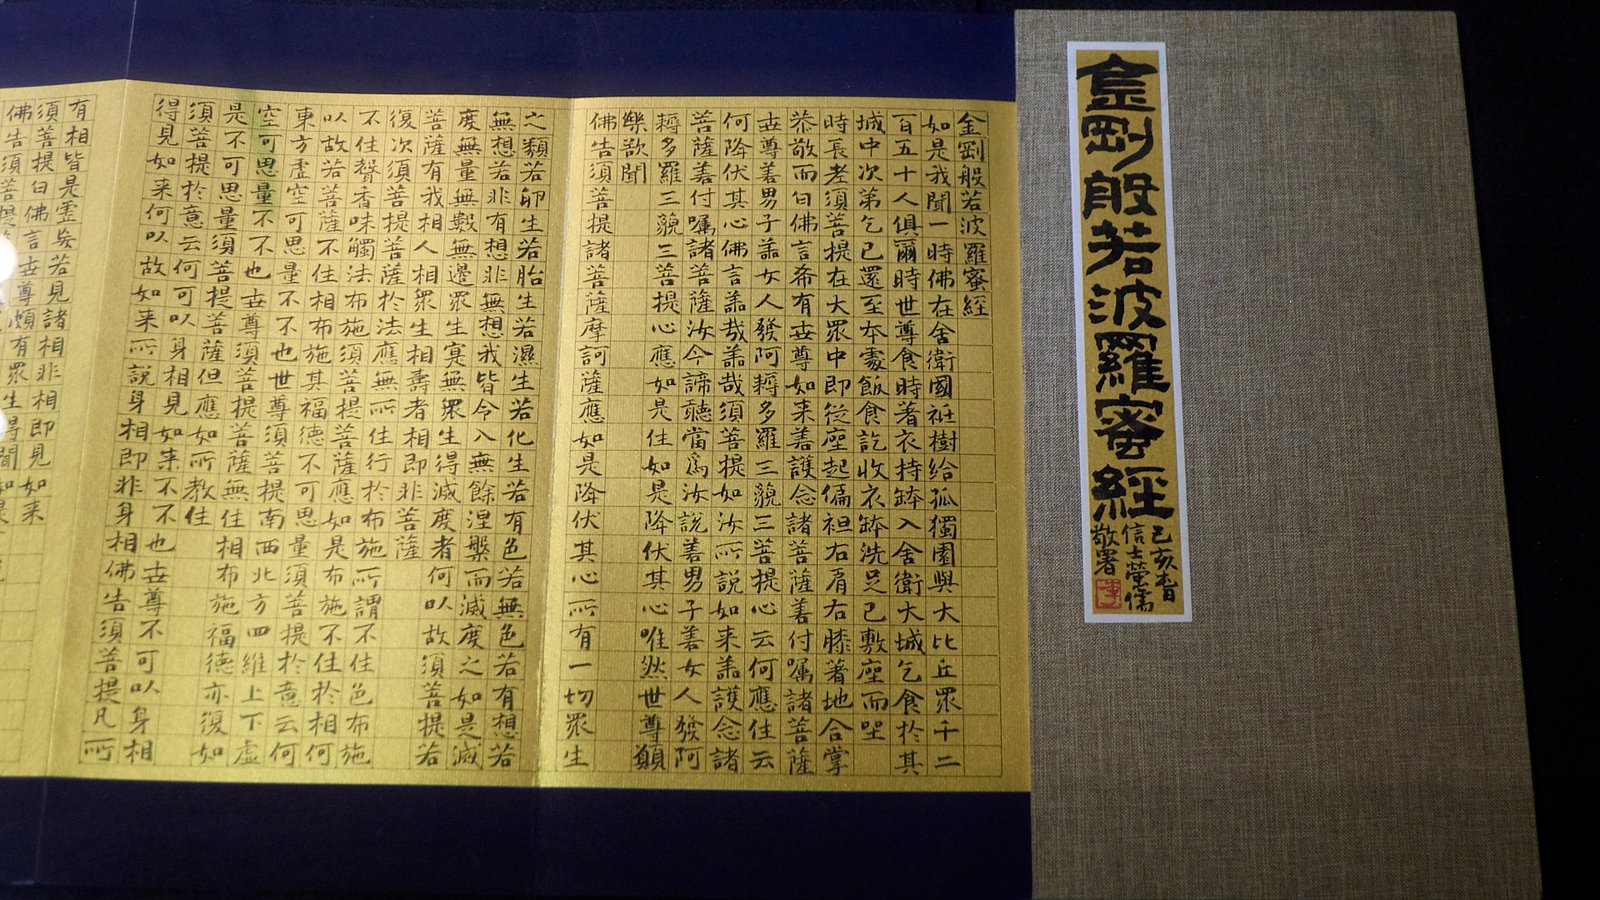 金剛般若波羅蜜經
己亥春
信士榮儒
敬署
金剛般若波羅蜜經
如是我聞一時佛在舍衛國祇樹給孤獨園與大比丘眾千二
百五十人俱爾時世尊食時著衣持缽入舍衛大城乞食於其
城中次第乞已還至本處飯食訖收衣缽洗足已敷座而坐
時長老須菩提在大眾中即從座起偏袒右肩右膝著地合掌
恭敬而白佛言希有世尊如來善護念諸菩薩善付囑諸菩薩
世尊善男子善女人發阿耨多羅三藐三菩提心云何應住云
何降伏其心佛言善哉善哉須菩提如汝所說如來善護念諸
菩薩善付囑諸菩薩汝今諦聽當為汝說善男子善女人發阿
耨多羅三藐三菩提心應如是住如是降伏其心唯然世尊願
樂欲聞
佛告須菩提諸菩薩摩訶薩應如是降伏其心所有一切眾生
之類若卵生若胎生若濕生若化生若有色若無色若有想若
無想若非有想非無想我皆令入無餘涅槃而滅度之如是滅
度無量無數無邊眾生寔無眾生得滅度者何以故須菩提若
菩薩有我相人相眾生相壽者相即非菩薩
復次須菩提菩薩於法應無所住行於布施所謂不住色布施
不住聲香味觸法布施須菩提菩薩應如是布施不住於相何
以故若菩薩不住相布施其福德不可思量須菩提於意云何
東方虛空可思量不不也世尊須菩提南西北方四維上下虛
空可思量不不也世尊須菩提菩薩無住相布施福德亦復如
是不可思量須菩提菩薩但應如所教住
須菩提於意云何可以身相見如來不不也世尊不可以身相
得見如來何以故如來所說身相即非身相佛告須菩提凡所
有相皆是虛妄若見諸相非相即見如來
須菩提白佛言世尊頗有眾生得聞如是
佛告須菩提